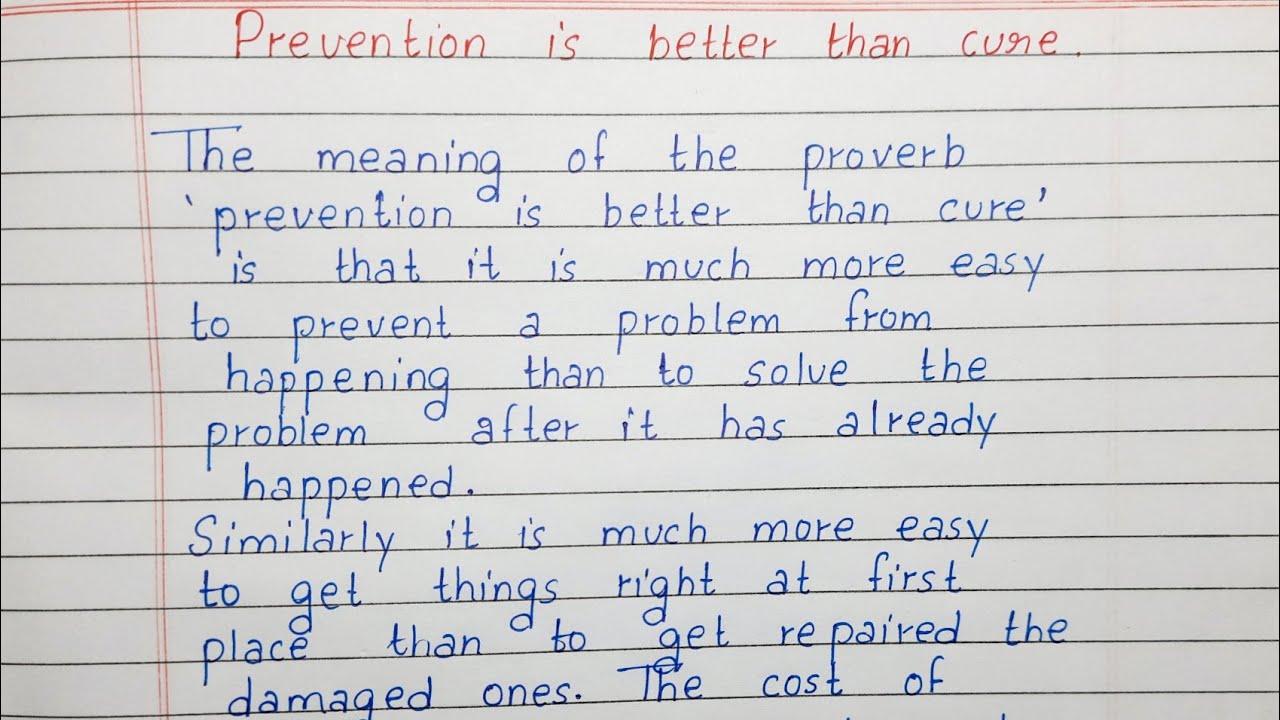 Prevention is better than cure.
The meaning of the proverb
'prevention is better than cure'
is that it is much more easy
to prevent a problem from
happening than to solve the
problem after it has already
happened.
Similarly it is much more easy
to get things right at first
place than to get repaired the
damaged ones. The cost of